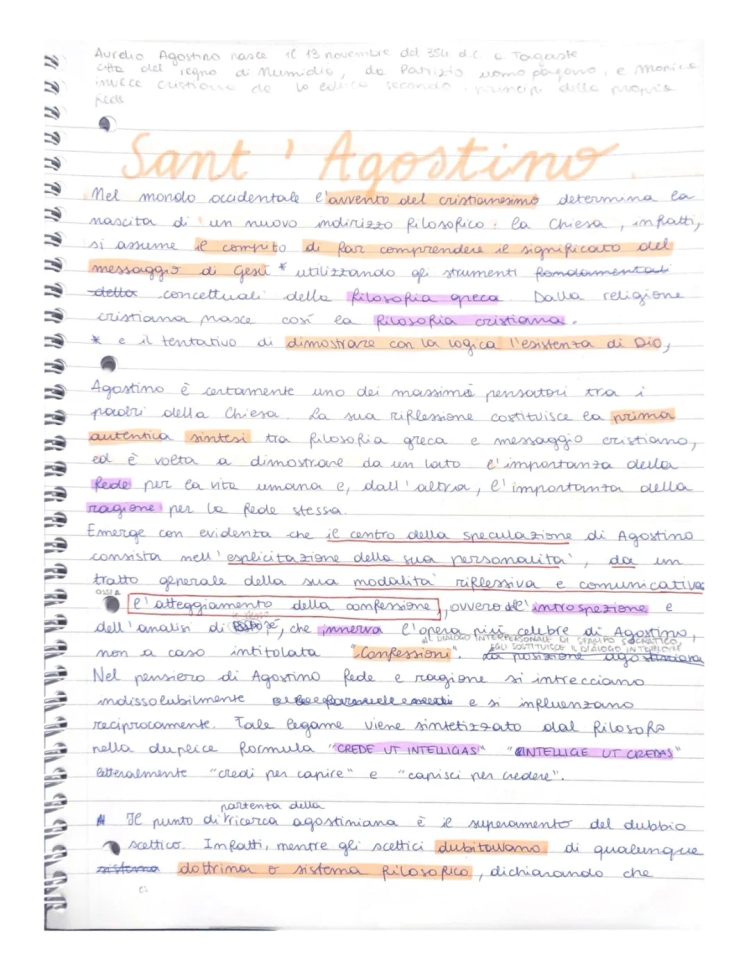 Aurelio Agostino nasce il 13 novembre del 354 d.C. a Tagaste
città del regno di Numidia, da Patrizio uomo pagano, e Monica
invece cristiana che lo educa secondo i principi della propria
fede
Sant'Agostino
Nel mondo occidentale l'avvento del cristianesimo determina la
nascita di un nuovo indirizzo filosofico: la Chiesa, infatti,
si assume il compito di far comprendere il significato del
messaggio di Gesù * utilizzando gli strumenti fondamentali
della concettuali della filosofia greca Dalla religione
cristiana nasce così la filosofia cristiana.
* e il tentativo di dimostrare con la logica l'esistenza di Dio,
Agostino è certamente uno dei massimi pensatori tra i
padri della Chiesa. La sua riflessione costituisce la prima
autentica sintesi tra filosofia greca e messaggio cristiano,
ed è volta a dimostrare da un lato l'importanza della
fede per la vita umana e, dall'altra, l'importanza della
ragione per la fede stessa.
Emerge con evidenza che il centro della speculazione di Agostino
consista nell'esplicitazione della sua personalità, da un
tratto generale della sua modalità riflessiva e comunicativa
ossia
l'atteggiamento della confessione, ovvero dell'introspezione e
dell'analisi di sé, che innerva l'opera più celebre di Agostino,
AL DIALOGO INTERPERSONALE DI STAMPO SOCRATICO
EGLI SOSTITUISCE IL DIALOGO INTERIORE
non a caso intitolata "Confessioni". La posizione agostiniana
Nel pensiero di Agostino fede e ragione si intrecciano
indissolubilmente e si influenzano
reciprocamente. Tale legame viene sintetizzato dal filosofo
nella duplice formula "CREDE UT INTELLIGAS" "INTELLIGE UT CREDAS"
letteralmente "credi per capire" e "capisci per credere".
partenza della
Il punto di ricerca agostiniana è il superamento del dubbio
scettico. Infatti, mentre gli scettici dubitavano di qualunque
sistema dottrina o sistema filosofico, dichiarando che